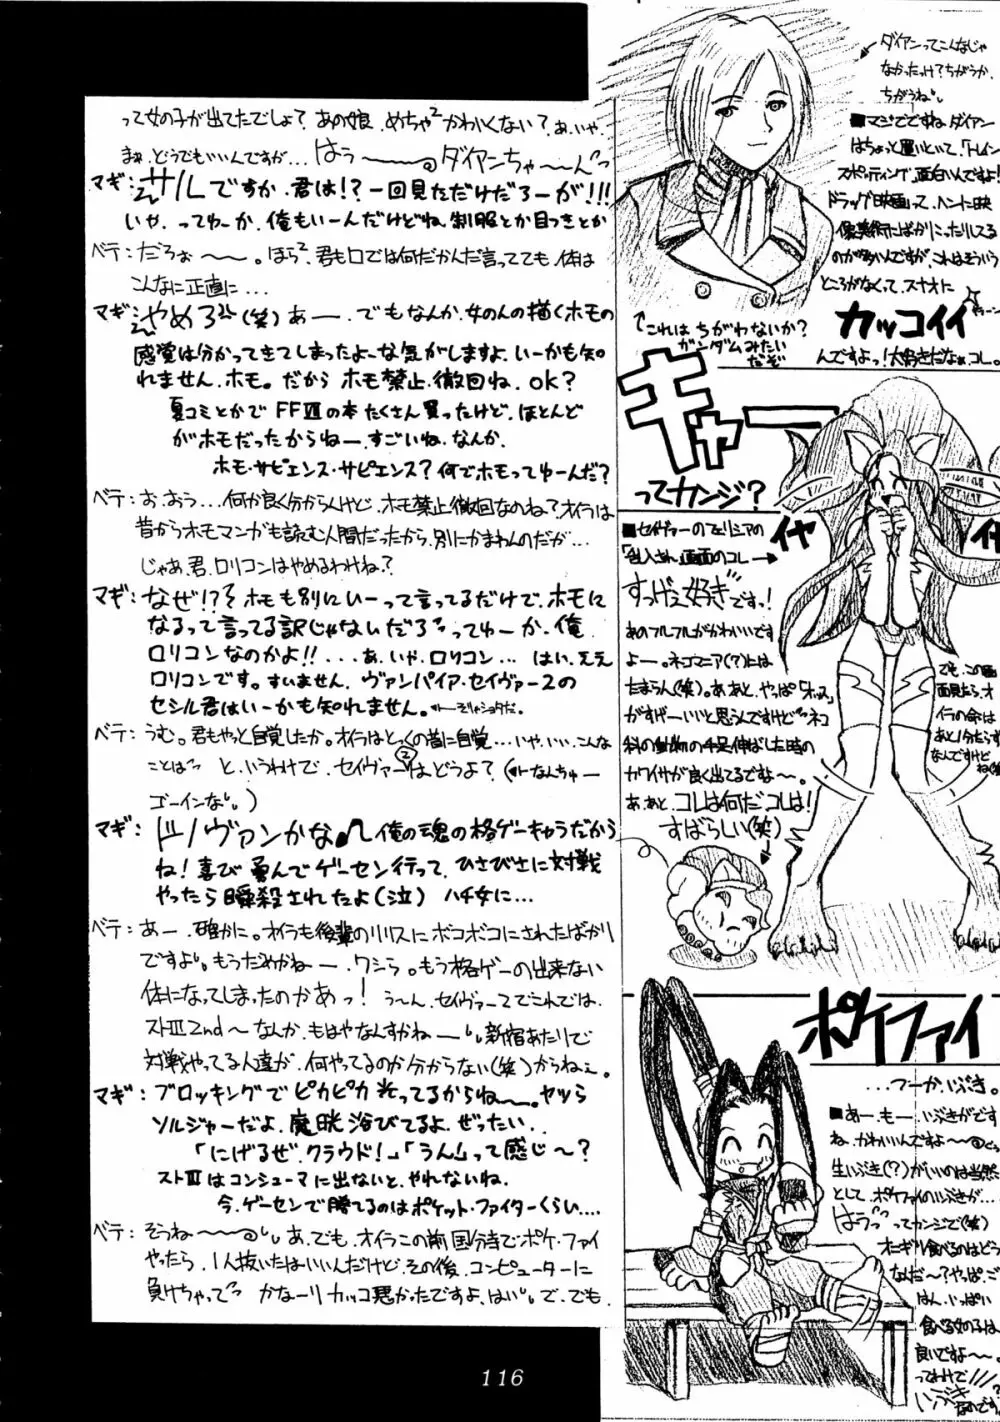 って女の子が出てたでしょ？あの娘、めちゃ²かわいくない？あ、いや、
まぁ、どうでもいいんですが…はぅ～～～ダイアンちゃ～ん
マギ：サルですか、君は！？一回見ただけだろーが！！！
いや、ってゆーか、俺もいーんだけどね、制服とか目つきとか
ベテ：だろぉ～～～。ほら²、君も口では何だかんだ言ってても、体は
こんなに正直に…
マギ：やめろ（笑）あー、でもなんか、女のんの描くホモの
感覚は分かってきてしまったよーな気がしますよ、いーかも知
れません、ホモ。だからホモ禁止、撤回ね、OK？
夏コミとかでFFⅦの本たくさん買ったけど、ほとんど
がホモだったからねー、すごいね、なんか。
ホモ・サピエンス・サピエンス？何でホモってゆーんだ？
ベテ：お、おう…何か良く分からんけど、ホモ禁止撤回なのね？オイラは
昔からホモマンガも読む人間だったから、別にかまわんのだが…
じゃあ、君、ロリコンはやめるわけね？
マギ：なぜ！？ホモも別にいーって言ってるだけで、ホモに
なるって言ってる訳じゃないだろってゆーか、俺
ロリコンなのかよ！！…あ、いや、ロリコン…はい、ええ
ロリコンです。すいません、ヴァンパイア・セイヴァー2の
セシル君はいーかも知れません。←ーぞりゃショタだ。
ベテ：うむ。君もやっと自覚したか。オイラはとっくの昔に自覚…いや、いい、こんな
ことは と、いうわけで、セイヴァー2はどうよ？（←なんちゅー
ゴーインな、）
マギ：ドノヴァンかな 俺の魂の格ゲーキャラだから
ね！喜び勇んでゲーセン行って、ひさびさに対戦
やったら瞬殺されたよ（泣）ハチ女に…
ベテ：あー、確かに。オイラも後輩のリリスにボコボコにされたばかり
ですよ。もうだめかねー、ワシら。もう格ゲーの出来ない
体になってしまったのかあっ！う～ん、セイヴァー2でこれでは、
ストⅢ2nd～なんか、もはやなんすかねー新宿あたりで
対戦やってる人達が、何やってるのか分からない（笑）からねぇ。
マギ：ブロッキングでピカピカ光ってるからねー、ヤツら
ソルジャーだよ、魔晄浴びてるよ、ぜったい。
「にげるぜ、クラウド！」「うん」って感じ～？
ストⅢはコンシューマに出ないと、やれないね。
今、ゲーセンで勝てるのはポケット・ファイターくらい….
ベテ：そうね～～～、あ、でも、オイラこの前国分寺でポケ・ファイ
やったら、1人抜いたはいいんだけど、その後、コンピューターに
負けちゃって かな～りカッコ悪かったですよ、はい。で、でも、
116
ダイアンってこんなじゃ
なかったっけ？ちがうか、
ちがうね。
■マジでですね ダイアン
はちょっと置いといて、「トレイン
スポッティング」、面白いんですよ！
ドラッグ映画って、ヘンに映
像美術にばかりこったりしてる
のが多いんですが、これはそういう
ところがなくて、スナオに
カッコイイ
んですよっ！大好きだなぁ、コレ。
これはちがわないか？
ガンダムみたい
だぞ
キャー
ってカンジ？
■セイヴァーのフェリシアの
「乱入され」画面のコレ→
すっげえ好きですっ！
あのフルフルがかわいいです
よー。ネコマニア（？）には
たまらん（笑）。あ、あと、やっぱ「ホッス」
がすげーいいと思うんですけど ネコ
科の動物の手足伸ばした時の
カワイサが良く出てるですよ～。
あ、あと、コレは何だコレは！
すばらしい（笑）
イヤ
イヤ
でも、この画
面見たら、オ
イラの命は
あと1分たらず
なんですけど
ね（笑）
ポケファイ
…フーか、いぶき。
■あー、もー、いぶきがです
ね、かわいいんですよ～～
生いぶき（？）がいいのは当然
として、ポケファイのいぶきが…
はうっってカンジで（笑）
オニギリ食べるのはどう
なんだ～？やっぱ、ご
はん、いっぱい
食べる女の子は
良いですよ～～。
ってわけで////
いぶき